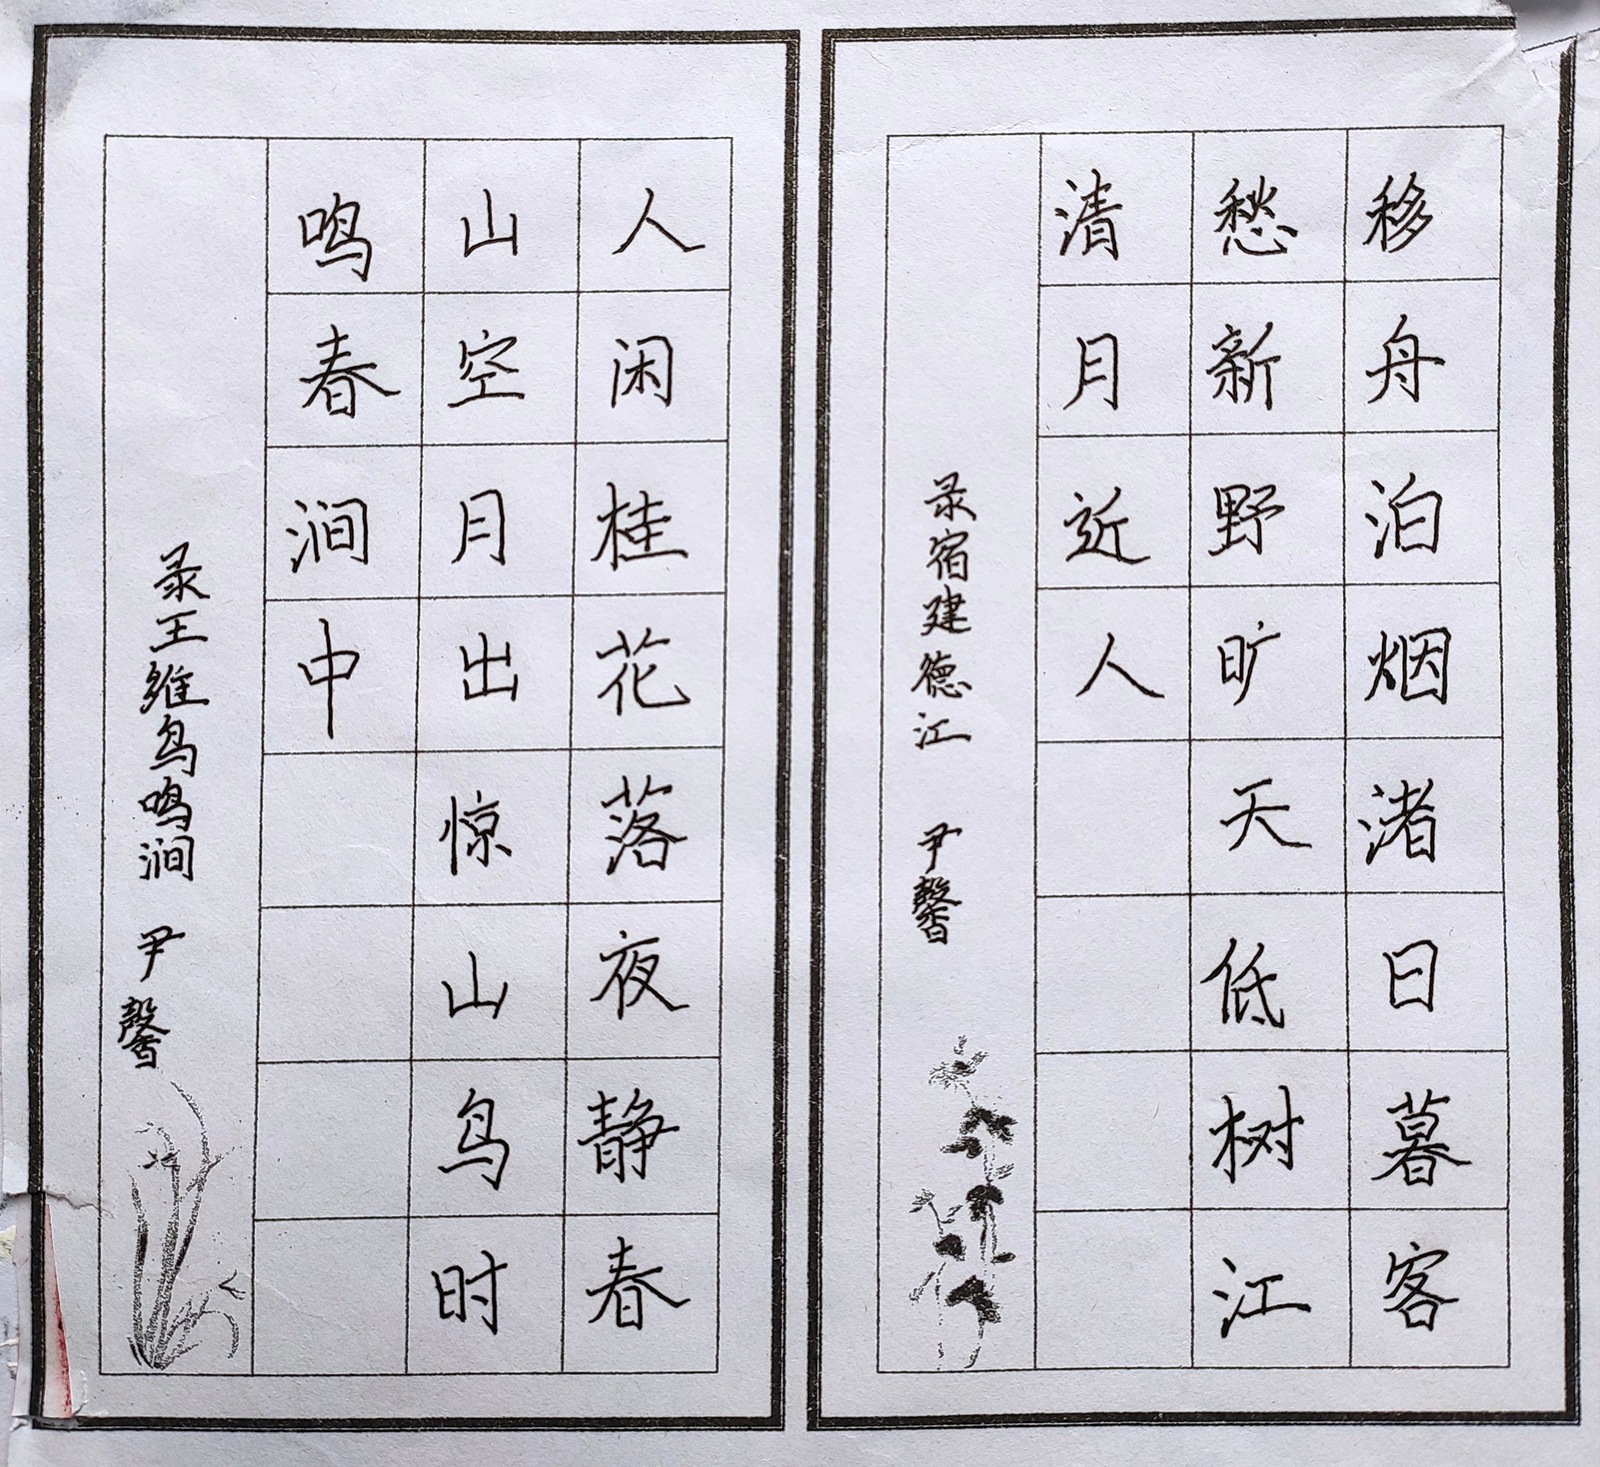 移舟泊烟渚日暮客
愁新野旷天低树江
清月近人
录宿建德江 尹馨
人闲桂花落夜静春
山空月出惊山鸟时
鸣春涧中
录王维鸟鸣涧 尹馨